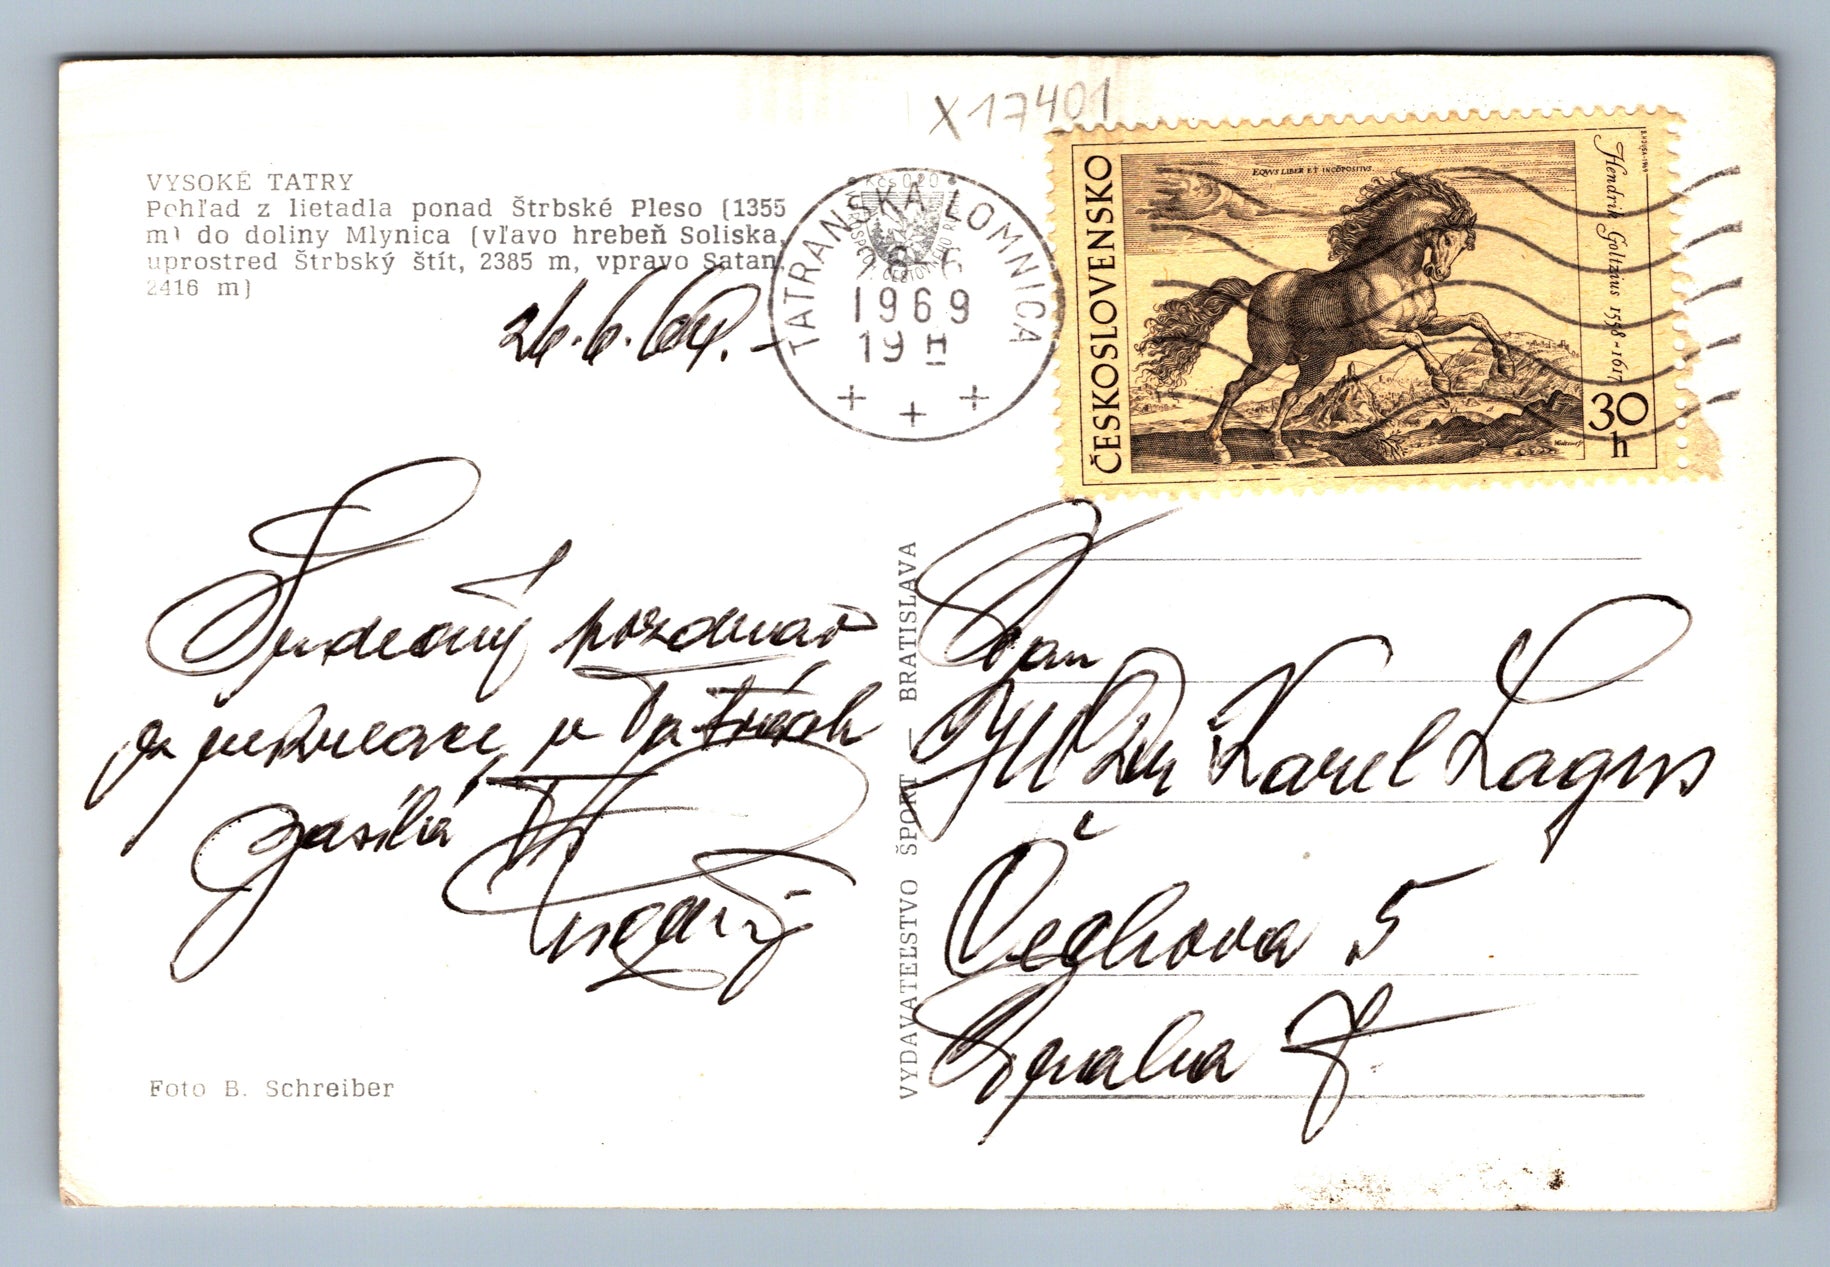 X17401
VYSOKÉ TATRY
Pohľad z lietadla ponad Štrbské Pleso (1355
m) do doliny Mlynica (vľavo hrebeň Soliska,
uprostred Štrbský štít, 2385 m, vpravo Satan,
2416 m)
26.6.69.-
TATRANSKÁ LOMNICA
1969
19 H
ČESKOSLOVENSKO
EQVVS LIBER ET INCÕPOSITVS
Hendrik Goltzius 1558-1617
30
h
Srdečný pozdrav
z rekreace v Tatrách
zasílá
Pan
JUDr Karel Lagus
Čechova 5
Praha 7.
VYDAVATEĽSTVO ŠPORT — BRATISLAVA
Foto B. Schreiber